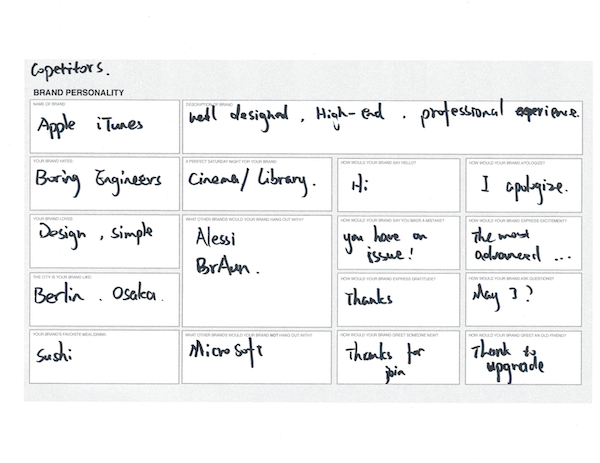 Copetitors.
BRAND PERSONALITY
NAME OF BRAND
Apple iTunes
DESCRIPTION OF BRAND
well designed, High-end. professional experience.
YOUR BRAND HATES:
Boring Engineers
A PERFECT SATURDAY NIGHT FOR YOUR BRAND:
Cinema/Library.
HOW WOULD YOUR BRAND SAY HELLO?
Hi
HOW WOULD YOUR BRAND APOLOGIZE?
I apologize.
YOUR BRAND LOVES:
Design, simple
WHAT OTHER BRANDS WOULD YOUR BRAND HANG OUT WITH?
Alessi
BrAun.
HOW WOULD YOUR BRAND SAY YOU MADE A MISTAKE?
you have an
issue!
HOW WOULD YOUR BRAND EXPRESS EXCITEMENT?
The most
advanced ...
THE CITY IS YOUR BRAND LIKE:
Berlin. Osaka.
HOW WOULD YOUR BRAND EXPRESS GRATITUDE?
Thanks
HOW WOULD YOUR BRAND ASK QUESTIONS?
May I?
YOUR BRAND'S FAVORITE MEAL/DRINK:
Sushi
WHAT OTHER BRANDS WOULD YOUR BRAND NOT HANG OUT WITH?
MicroSoft
HOW WOULD YOUR BRAND GREET SOMEONE NEW?
Thanks for
join
HOW WOULD YOUR BRAND GREET AN OLD FRIEND?
Thank to
upgrade